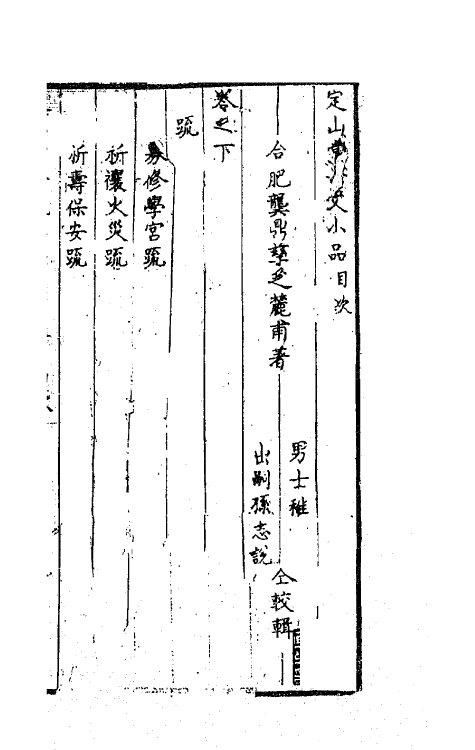 定山堂小品目次
合肥龔鼎孳芝麓甫著
男士稚
出嗣孫志說
仝較輯
卷之下
疏
募修學宮疏
祈禳火災疏
祈壽保安疏